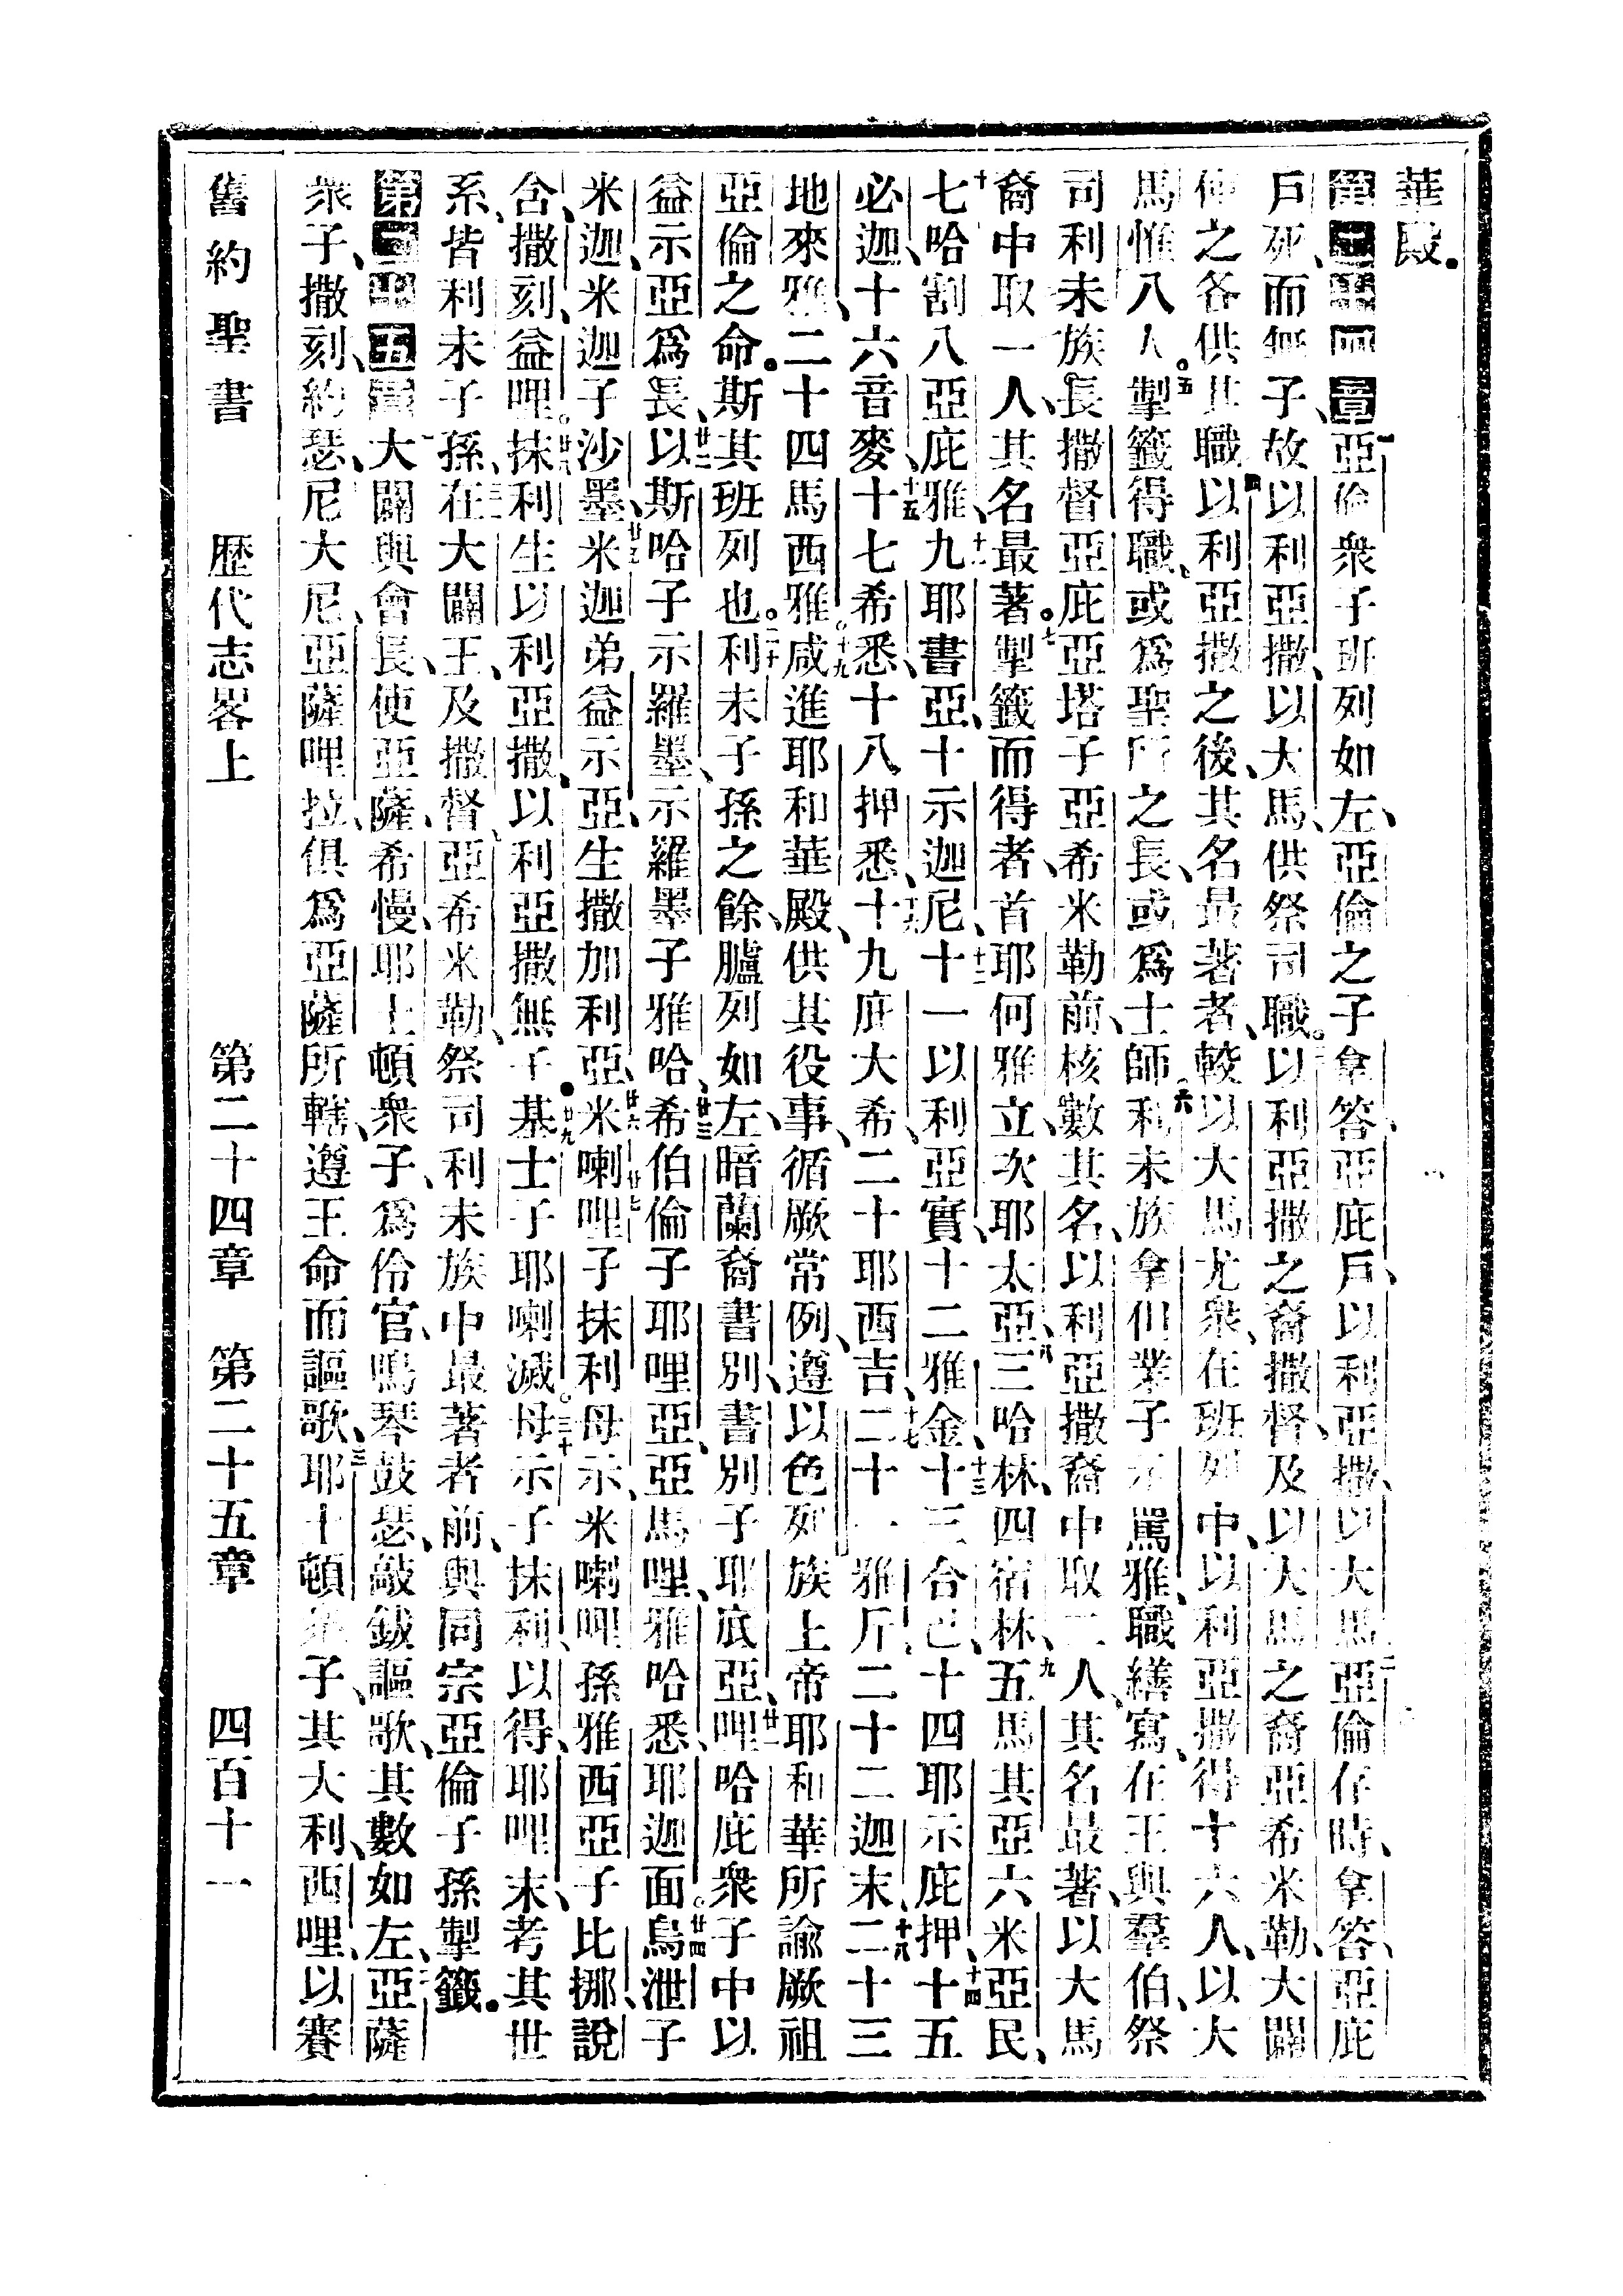 華殿。
第二十四章亞倫衆子班列如左、亞倫之子、拿答、亞庇戶、以利亞撒、以大馬、二亞倫在時、拿答、亞庇
戶死、而無子、故以利亞撒、以大馬、供祭司職。三以利亞撒之裔撒督、及以大馬之裔亞希米勒、大闢
使之各供其職、四以利亞撒之後、其名最著者、較以大馬尤衆、在班列中、以利亞撒得十六人、以大
馬惟八人。五掣籤得職、或爲聖所之長、或爲士師。六利未族拿但業子示罵雅、職繕寫、在王與羣伯、祭
司利未族長、撒督、亞庇亞塔子亞希米勒前、核數其名、以利亞撒裔中取一人、其名最著、以大馬
裔中取一人、其名最著。七掣籤而得者、首耶何雅立、次耶太亞、八三哈林、四宿林、九五馬其亞、六米亞民、
十七哈割、八亞庇雅、十一九耶書亞、十示迦尼、十二十一以利亞實、十二雅金、十三十三合巴、十四耶示庇押、十四十五
必迦、十六音麥、十五十七希悉、十八押悉、十六十九庇大希、二十耶西吉、十七二十一雅斤、二十二迦末、十八二十三
地來雅、二十四馬西雅。十九咸進耶和華殿、供其役事、循厥常例、遵以色列族上帝耶和華所諭厥祖
亞倫之命。斯其班列也。二十利未子孫之餘、臚列如左、暗蘭裔書別、書別子耶底亞、廿一哩哈庇衆子中、以
益示亞爲長、廿二以斯哈子示羅墨、示羅墨子雅哈、廿三希伯倫子耶哩亞、亞馬哩、雅哈悉、耶迦面。廿四烏泄子
米迦、米迦子沙墨、廿五米迦弟益示亞、益示亞生撒加利亞、廿六米喇哩子抹利母示、米喇哩孫雅西亞子比挪、廿七說
含、撒刻、益哩。廿八抹利生以利亞撒、以利亞撒無子。廿九基士子耶喇滅。三十母示子抹利、以得、耶哩末、考其世
系、皆利未子孫、三一在大闢王、及撒督、亞希米勒、祭司利未族中最著者前、與同宗亞倫子孫掣籤。
第二十五章一大闢與會長、使亞薩、希慢、耶土頓衆子、爲伶官、鳴琴鼓瑟、敲鈸謳歌、其數如左、二亞薩
衆子、撒刻、約瑟、尼大尼、亞薩哩拉、俱爲亞薩所轄、遵王命而謳歌、三耶土頓衆子、其大利、西哩、以賽
舊約聖書　歷代志畧上　第二十四章　第二十五章　四百十一